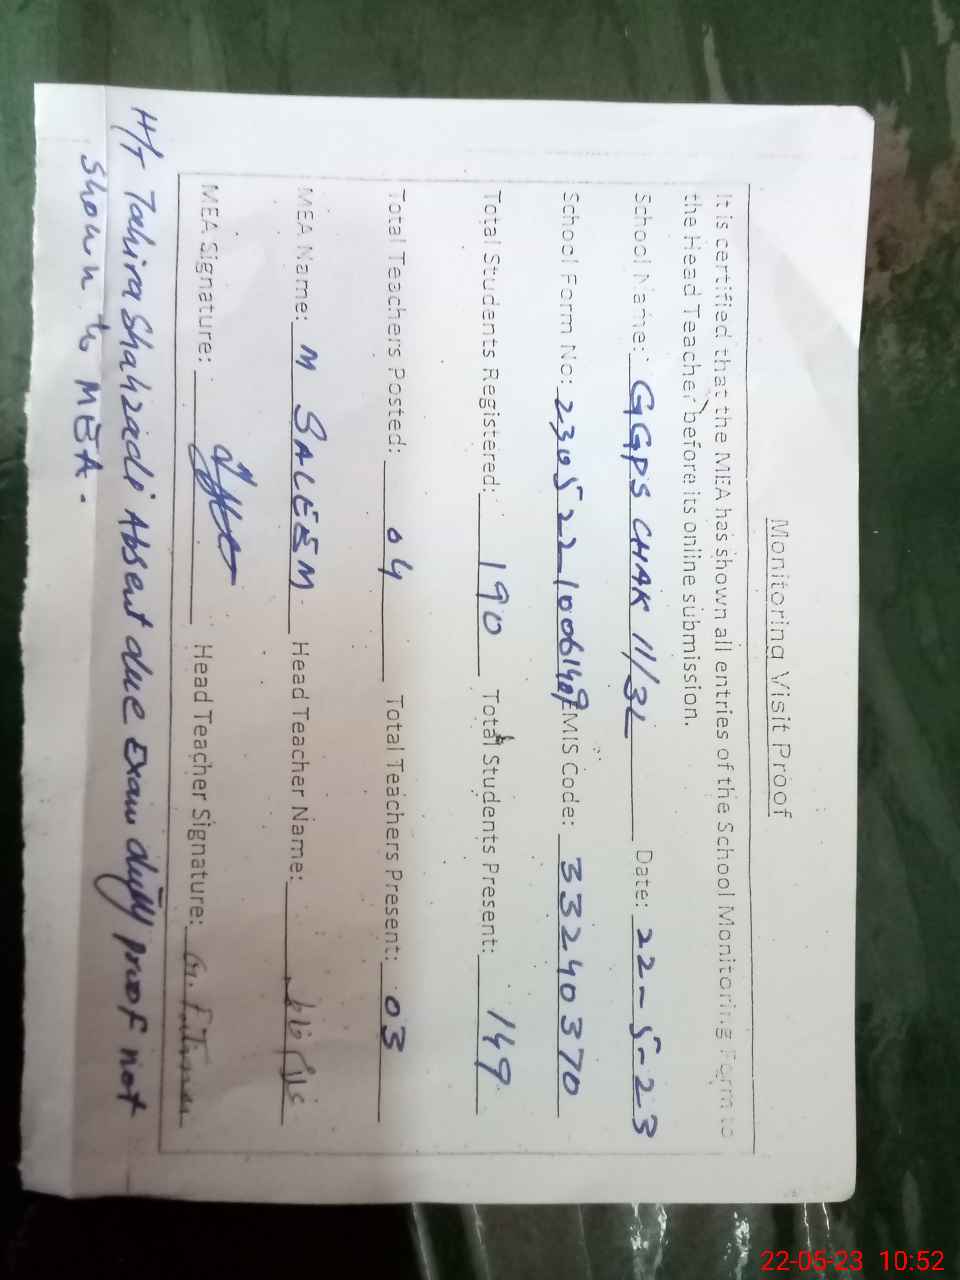 Monitoring Visit Proof
It is certified that the MEA has shown all entries of the School Monitoring Form to
the Head Teacher before its online submission.
School Name: GGPS CHAK 11/3L Date: 22-5-23
School Form No: EMIS Code: 33240370
Total Students Registered: 190 Total Students Present: 149
Total Teachers Posted: 04 Total Teachers Present: 03
MEA Name: M SALEEM Head Teacher Name:
MEA Signature: Head Teacher Signature:
H/T Tahira Shahzadi Absent due Exam duty proof not
shown to MEA.
22-05-23 10:52